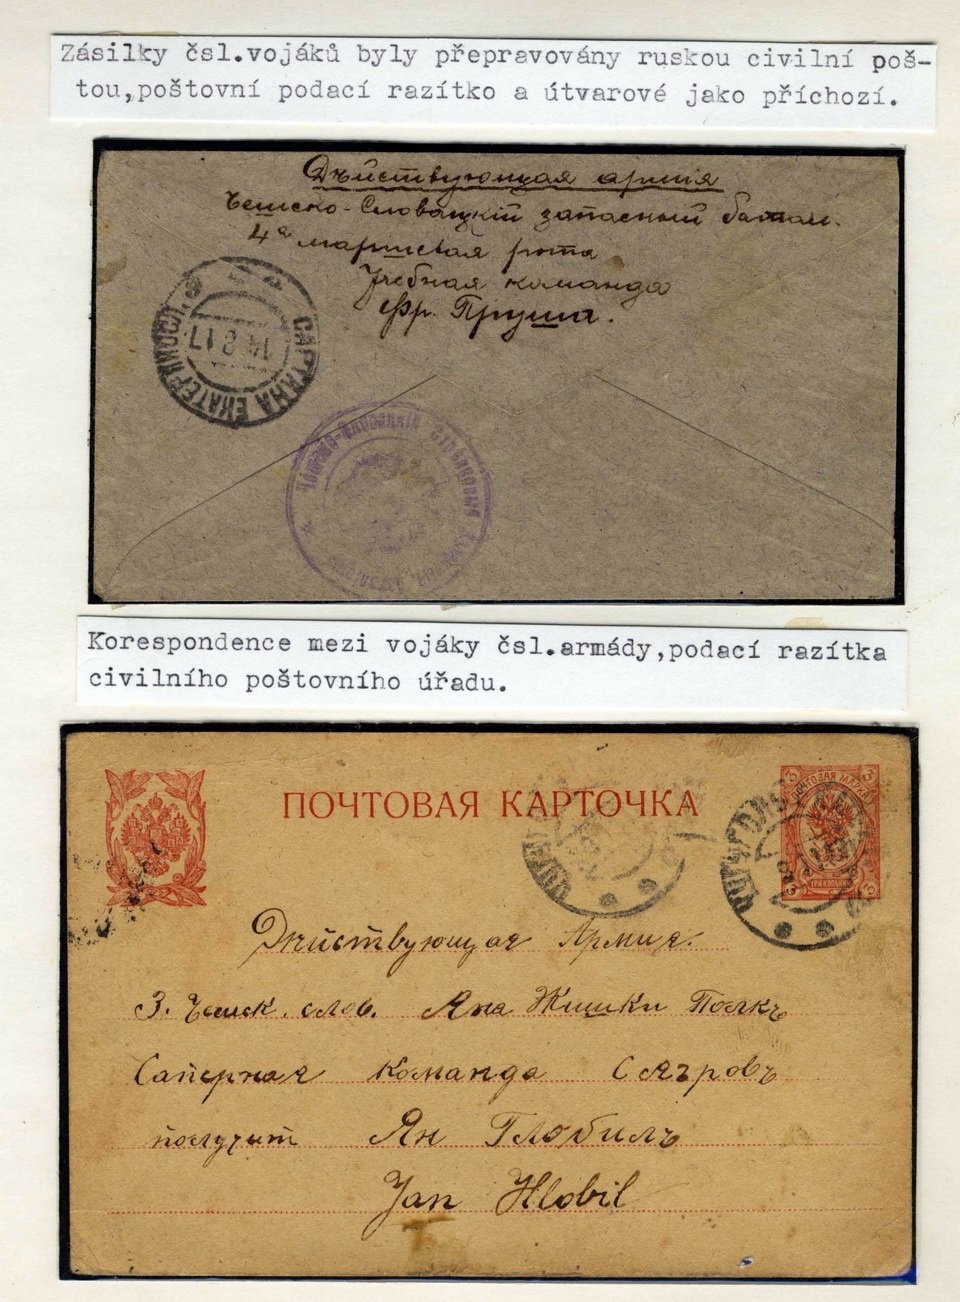 Zásilky čsl.vojáků byly přepravovány ruskou civilní poš-
tou,poštovní podací razítko a útvarové jako příchozí.
Дѣйствующая армія
Чешско-Словацкій запасный батал.
4ª маршевая рота
Учебная команда
Фр. Пруша.
САРТАНА ЕКАТЕРИНОС
14 8 17
Чешско-Словацкій Стрѣлковый
Korespondence mezi vojáky čsl.armády,podací razítka
civilního poštovního úřadu.
ПОЧТОВАЯ КАРТОЧКА
ПОЧТОВАЯ МАРКА
3 3
3 3
Дѣйствующая Армия.
3. Чешск. слов. Яна Жишки Полкъ
Саперная команда
получит Ян Глобилъ
Jan Hlobil